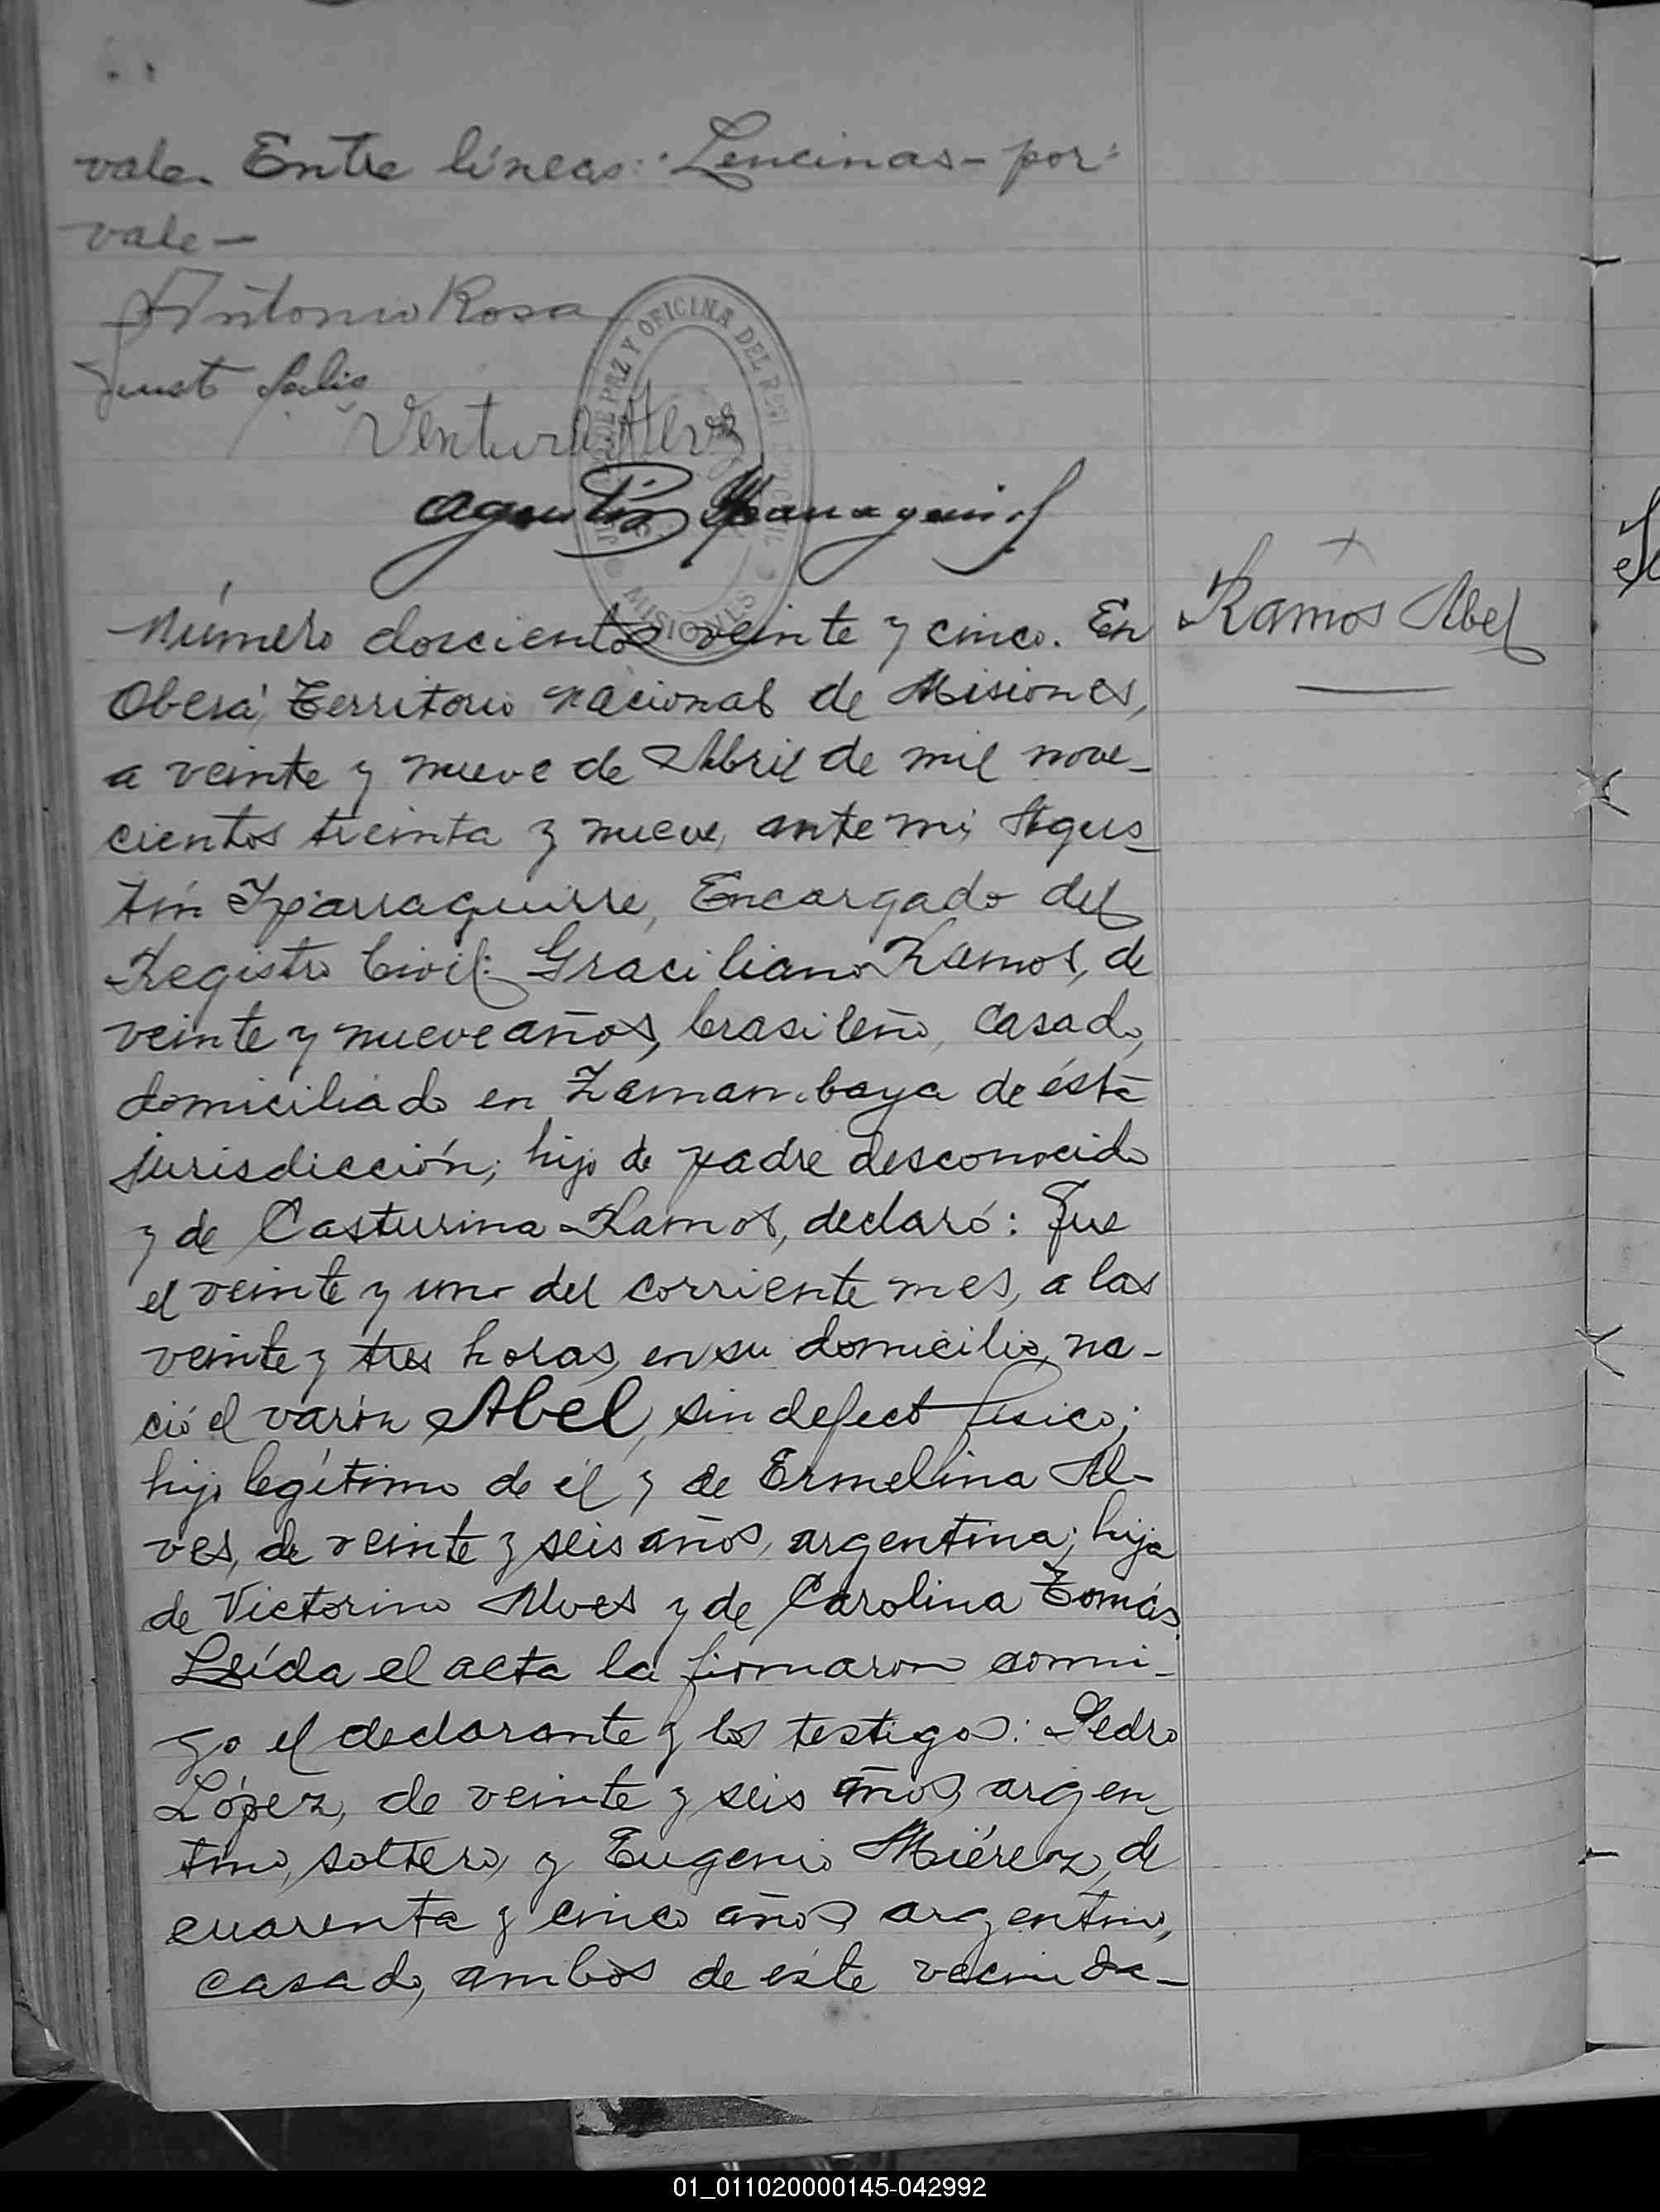 vale. Entre líneas: Lencinas - por:
vale -
Antonio Rosa
Ventura Alvez
JUZGADO DE PAZ Y OFICINA DEL REGISTRO CIVIL
MISIONES
Número doscientos veinte y cinco. En
Ramos Abel
Oberá, Territorio Nacional de Misiones,
a veinte y nueve de Abril de mil nove-
cientos treinta y nueve, ante mi, Agus-
tín Yparraguirre, Encargado del
Registro Civil: Graciliano Ramos, de
veinte y nueve años, brasileño, casado,
domiciliado en Zamambaya de ésta
jurisdicción; hijo de padre desconocido
y de Casturina Ramos, declaró: Que
el veinte y uno del corriente mes, a las
veinte y tres horas, en su domicilio, na-
ció el varón Abel, sin defecto físico;
hijo legítimo de él y de Ermelina Al-
ves, de veinte y seis años, argentina; hija
de Victorino Alves y de Carolina Tomás.
Leída el acta la firmaron conmi-
go el declarante y los testigos: Pedro
López, de veinte y seis años, argen-
tino, soltero, y Eugenio Miérez, de
cuarenta y cinco años, argentino,
casado, ambos de éste vecinda-
01_011020000145-042992